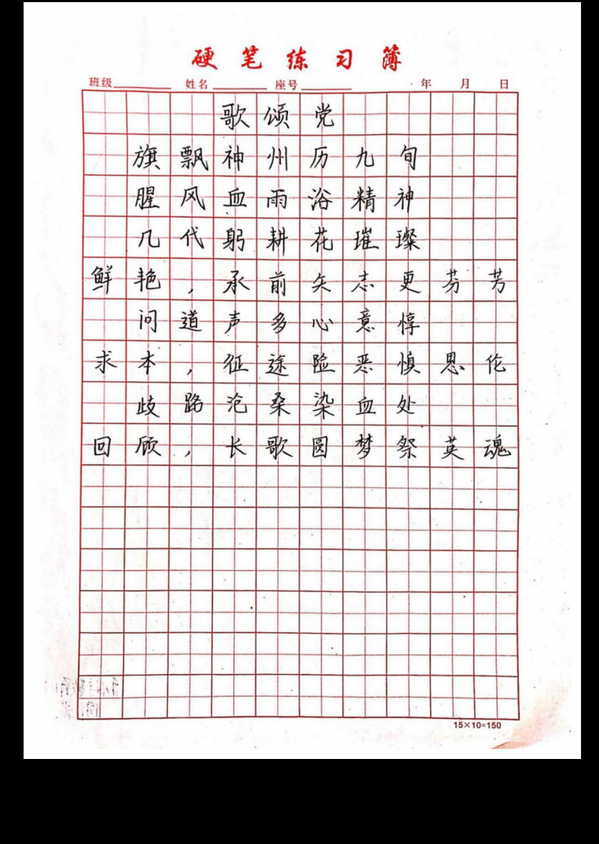 硬笔练习簿
班级 姓名 座号 年 月 日
歌颂党
旗飘神州历九旬
腥风血雨浴精神
几代躬耕花璀璨
鲜艳，承前矢志更芬芳
问道声多心意惇
求本，征途险恶慎思伦
歧路沧桑染血处
回顾，长歌圆梦祭英魂
15×10=150